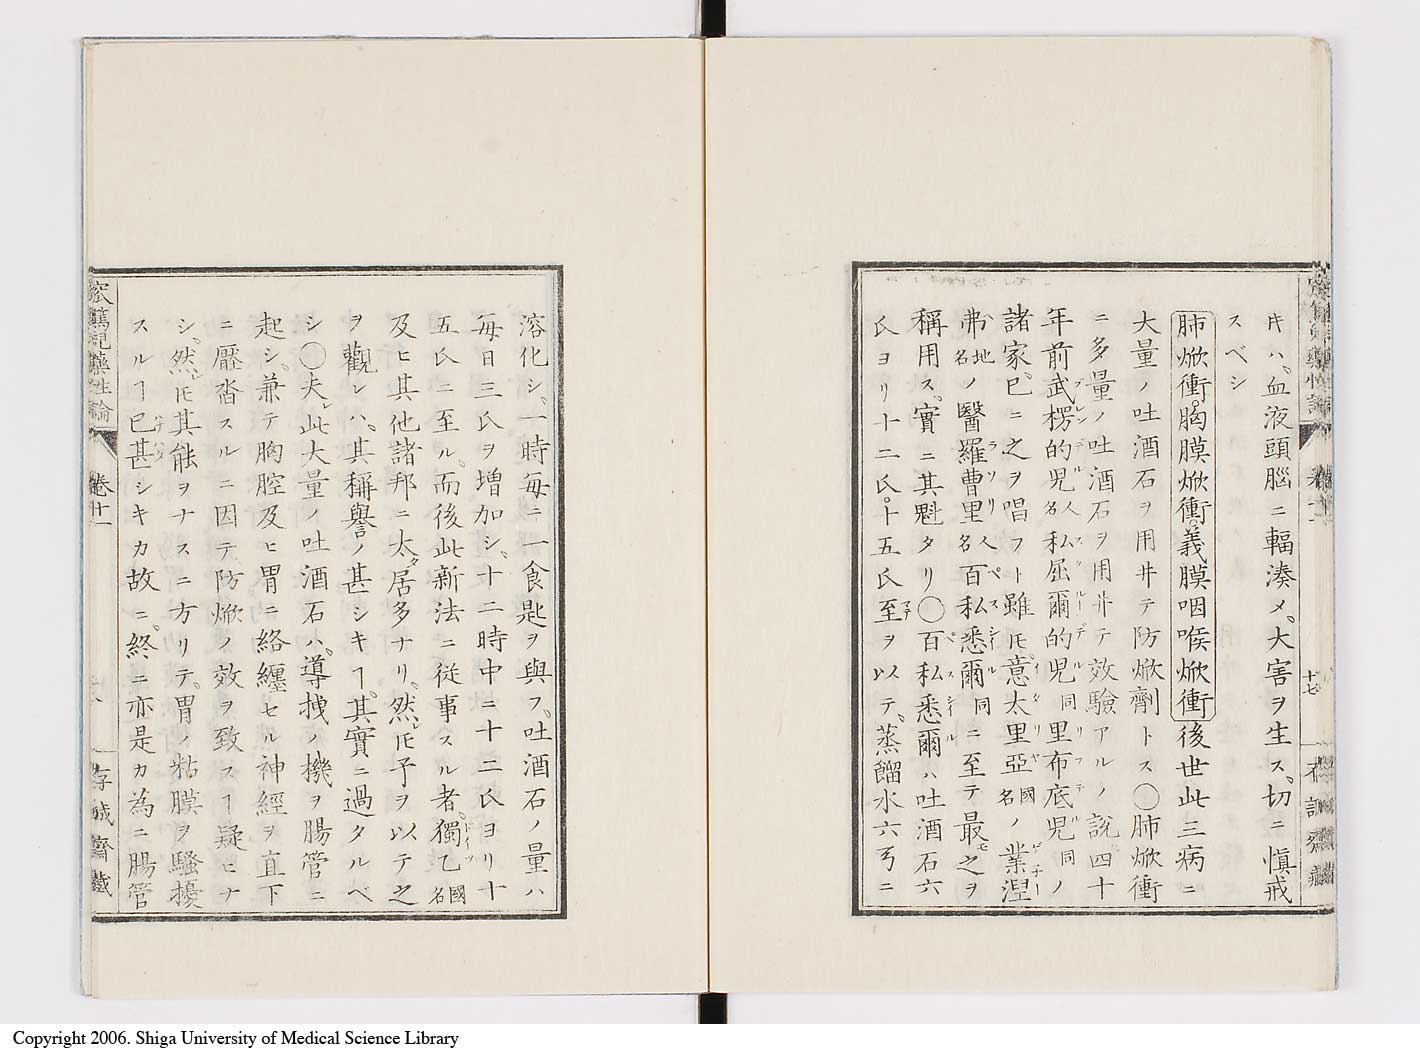 キハ、血液頭腦ニ輻湊メ、大害ヲ生ス、切ニ愼戒
スベシ
肺焮衝。胸膜焮衝。義膜咽喉焮衝 後世此三病ニ
大量ノ吐酒石ヲ用井テ防焮劑トス〇肺焮衝
ニ多量ノ吐酒石ヲ用井テ效驗アルノ説、四十
年前武楞的児人名私屈爾的児同里布底児同ノ
諸家、已ニ之ヲ唱フト雖𪜈、意太里亞國名ノ業涅
弗地名ノ醫羅曹里人名百私悉爾同ニ至テ最モ之ヲ
稱用ス、實ニ其魁タリ〇百私悉爾ハ吐酒石六
氏ヨリ十二氏、十五氏至ヲ以テ、蒸餾水六弓ニ
溶化シ、一時毎ニ一食匙ヲ與フ、吐酒石ノ量ハ
毎日三氏ヲ増加シ、十二時中ニ十二氏ヨリ十
五氏ニ至ル、而後此新法ニ従事スル者、獨乙國名
及ヒ其他諸邦ニ太タ居多ナリ、然レ𪜈予ヲ以テ之
ヲ觀レハ、其稱譽ノ甚シキヿ、其實ニ過タルベ
シ〇夫レ此大量ノ吐酒石ハ、導拽ノ機ヲ腸管ニ
起シ、兼テ胸腔及ヒ胃ニ絡纏セル神經ヲ直下
ニ壓沓スルニ因テ防焮ノ效ヲ致スヿ疑ヒナ
シ、然レ𪜈其能ヲナスニ方リテ、胃ノ粘膜ヲ騷擾
スルヿ已甚シキカ故ニ、終ニ亦是カ為ニ腸管
窊篤児藥性論
卷十一
存誠齋藏